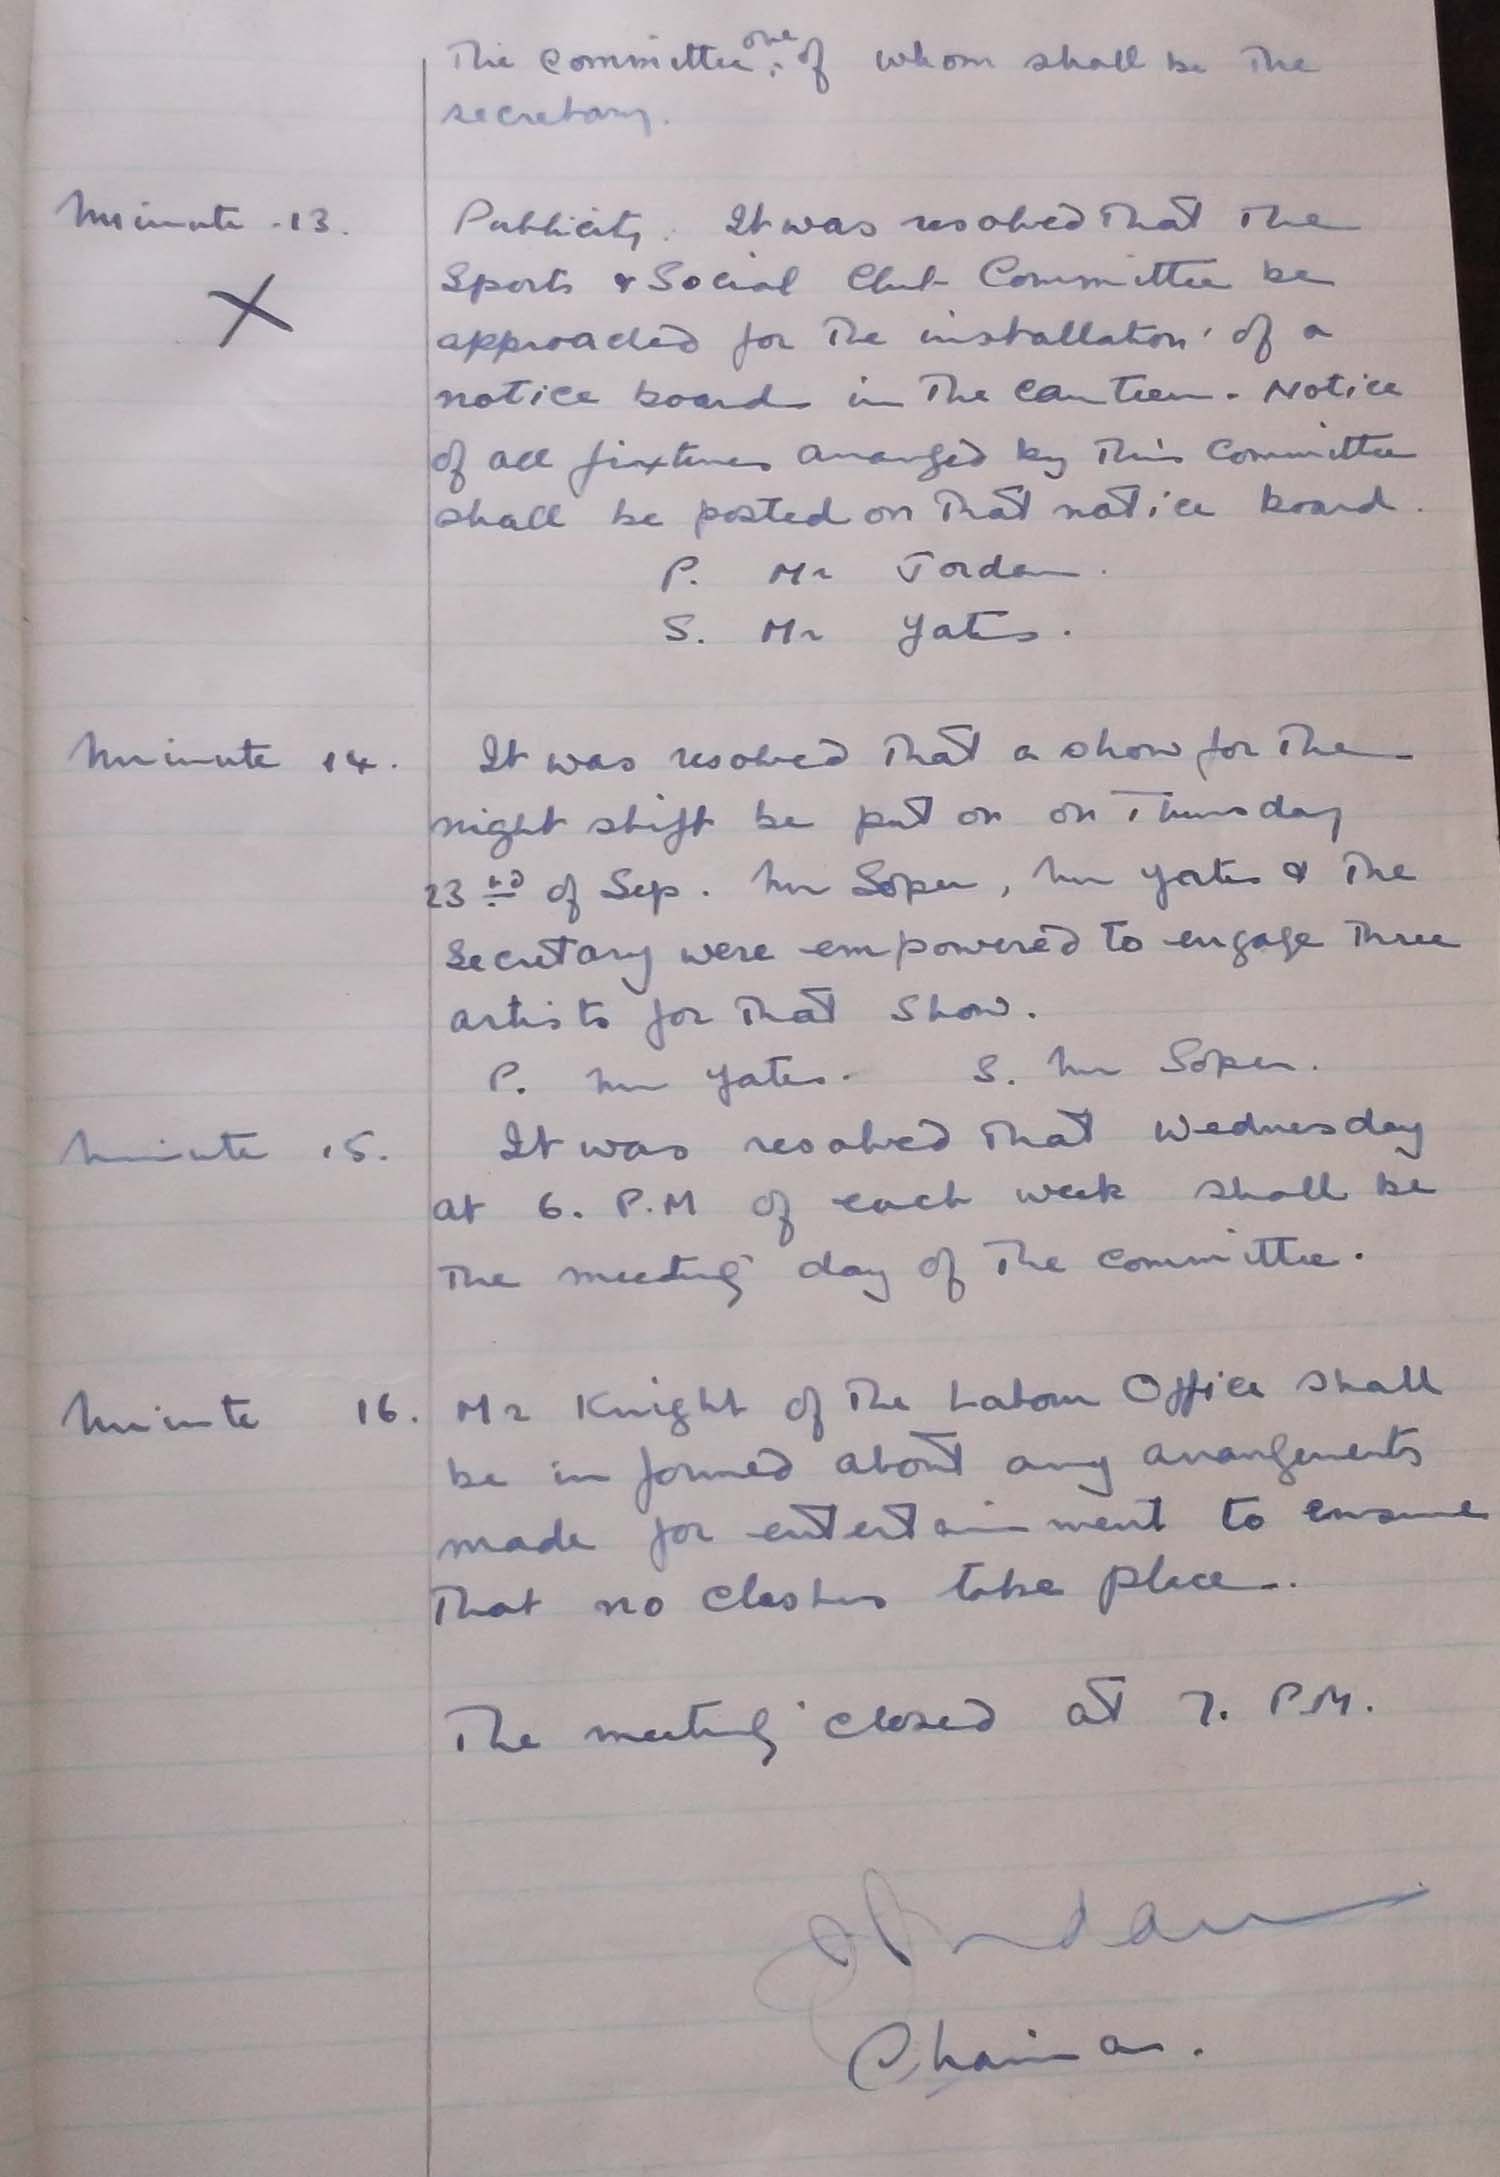 The Committee one of whom shall be The
secretary.
Minute 13. Publicity. It was resolved That The
X
Sports & Social Club Committee be
approached for The installation of a
notice board in The canteen. Notice
of all fixtures arranged by This Committee
shall be posted on That notice board.
P. Mr Jordan.
S. Mr Yates.
Minute 14. It was resolved That a show for The
night shift be put on on Thursday
23rd of Sep. Mr Soper, Mr Yates & The
Secretary were empowered to engage Three
artists for That Show.
P. Mr Yates. S. Mr Soper.
Minute 15. It was resolved That Wednesday
at 6. P.M of each week shall be
The meeting day of The committee.
Minute 16. Mr Knight of The Labour Office shall
be informed about any arrangements
made for entertainment to ensure
That no clashes take place.
The meeting closed at 7. P.M.
Jordan
Chairman.